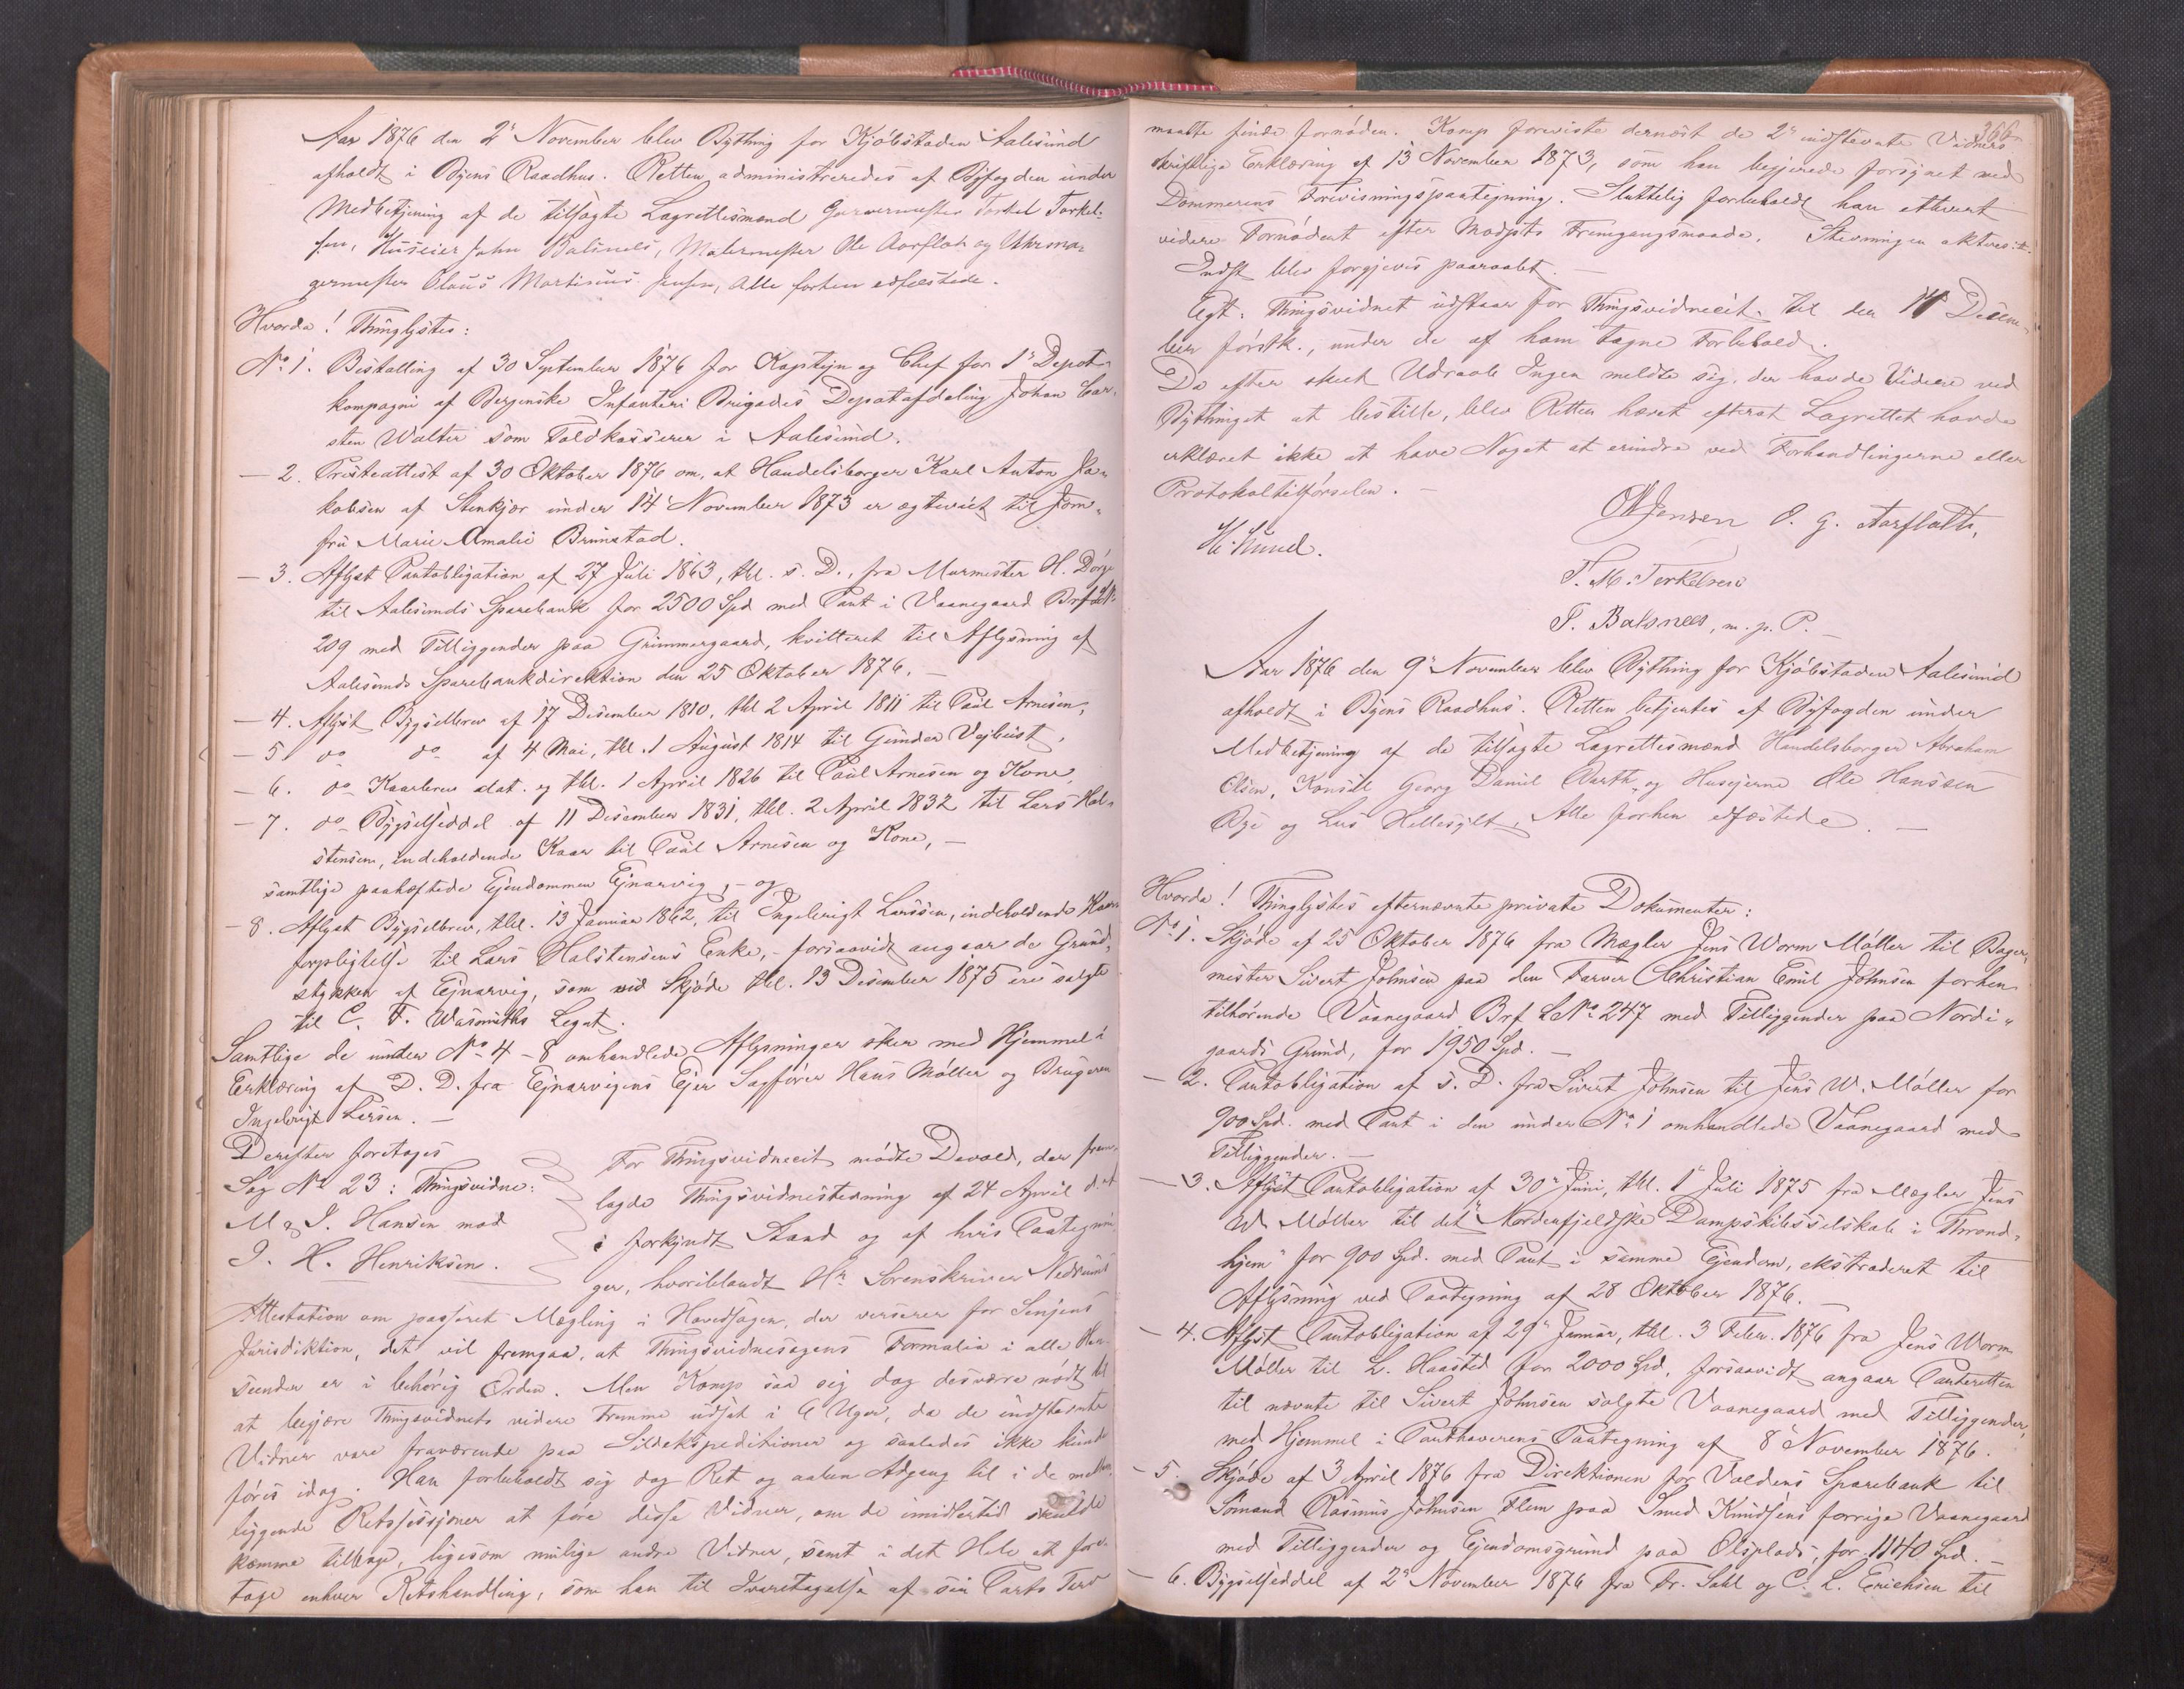 Aar 1876 den 2n November blev Bything for Kjøbstaden Aalesund
afholdt i Byens Raadhus. Retten administreredes af Byfogden under
Medbetjening af de tilsagte Lagrettesmænd Garvermester Torkel Torkel-
sen, Huseier John Balsnes, Malermester Ole Aarflot og Uhrma-
germester Olaus Martinus Jensen, alle forhen edfæstede.
Hvorda! Thinglystes:
No 1. Bestalling af 30 September 1876 for Kaptejn og Chef for 1s Depot-
kompagni af Bergenske Infanteri Brigades Depotafdeling Johan Car-
sten Walter som Toldkasserer i Aalesund.
— 2. Presteattest af 30 Oktober 1876 om, at Handelsborger Karl Anton Ja-
kobsen af Stenkjær under 14 November 1873 er ægteviet til Jom-
fru Marie Amalie Brunstad.
— 3. Aflyst Pantobligation af 27 Juli 1863, thl. s. D., fra Murmester H. Dörge
til Aalesunds Sparebank for 2500 Spd med Pant i Vaanegaard Brf L No
209 med Tilliggender paa Grimmergaard, kvitteret til Aflysning af
Aalesunds Sparebankdirektion den 25 Oktober 1876. —
— 4. Aflyst Bygselbrev af 17 Desember 1810, thl 2 April 1811 til Paul Arnesen,
— 5 do do af 4 Mai, thl. 1 August 1814 til Gunder Vejbust,
— 6. do Kaarbrev dat. og thl. 1 April 1826 til Paul Arnesen og Kone,
— 7. do Bygselseddel af 11 Desember 1831, thl. 2 April 1832 til Lars Hal-
stensen, indeholdende Kaar til Paul Arnesen og Kone, —
samtlige paahæftede Ejendommen Ejnarvig, – og
— 8. Aflyst Bygselbrev, thl. 13 Januar 1862, til Ingebrigt Larssen, indeholdende Kaar-
forpligtelse til Lars Halstensens Enke, – forsaavidt angaar de Grund-
stykker af Ejnarvig, som ved Skjøde thl. 13 Desember 1875 ere solgte
til C. F. Wasmuths Legat.
Samtlige de under No 4 – 8 omhandlede Aflysninger sker med Hjemmel i
Erklæring af D. D. fra Ejnarvigens Ejer Sagfører Hans Møller og Brugeren
Ingebrigt Larsen. —
Derefter foretoges
Sag No 23: Thingsvidne:
M & J. Hansen mod
J. H. Henriksen.
For Thingsvidneeit mødte Devold, der frem-
lagde Thingsvidnestevning af 24 April d. A
i forkyndt Stand og af hvis Paategnin-
ger, hvoriblandt Hr Sorenskriver Nedrums
Attestation om passeret Mægling i Hovedsagen, der verserer for Senjens
Jurisdiktion, det vil fremgaa, at Thingsvidnesagens Formalia i alle Hen-
seender er i behørig Orden. Men Komp saa sig dog desværre nødt til
at begjære Thingsvidnets videre Fremme udsat i 6 Uger, da de indstevnte
Vidner vare fraværende paa Sildekspeditioner og saaledes ikke kunde
føres idag. Han forbeholdt sig dog Ret og aaben Adgang til i de mellem-
liggende Retssessjoner at føre disse Vidner, om de imidlertid skulde
komme tilbage, ligesom mulige andre Vidner, samt i det Hele at fore-
tage enhver Retshandling, som han til Ivaretagelse af sin Parts Tarv
366
maatte finde fornøden. Komp foreviste dernæst de 2n indstevnte Vidners
skriftlige Erklæring af 13 November 1873, som han begjerede forsynet med
Dommerens Forevisningspaategning. Sluttelig forbeholdt han ethvert
videre Fornødent efter Modpts Fremgangsmaade. Stevningen akteres: it.
Indst blev forgjeves paaraabt. —
Egt. Thingsvidnet udstaar for Thingsvidneeit. til den 14 Desem-
ber førstk., under de af ham tagne Forbehold.
Da efter skeet Udraab Ingen meldte sig, der havde Videre ved
Bythinget at bestille, blev Retten hævet efterat Lagrettet havde
erklæret ikke at have Noget at erindre ved Forhandlingerne eller
Protokoltilførselen. —
OMJensen O. G. Aarflott,
T. M. Torkelsen
J. Balsnees, m. p. P. —
Aar 1876 den 9n November blev Bything for Kjøbstaden Aalesund
afholdt i Byens Raadhus. Retten betjentes af Byfogden under
Medbetjening af de tilsagte Lagrettesmænd Handelsborger Abraham
Olsen, Konsul Georg Daniel Barth og Husejerne Ole Hanssen
Rye og Lars Hellesylt, Alle forhen edfæstede. —
Hvorda! Thinglystes efternævnte private Dokumenter:
No 1. Skjøde af 25 Oktober 1876 fra Mægler Jens Worm Møller til Bager-
mester Sivert Johnsen paa den Farver Christian Emil Johnsen forhen
tilhørende Vaanegaard Brf L No 247 med Tilliggender paa Nordi-
gaards Grund, for 1950 Spd. —
— 2. Pantobligation af s. D. fra Sivert Johnsen til Jens W. Møller for
900 Spd. med Pant i den under No 1 omhandlede Vaanegaard med
Tilliggender. —
— 3. Aflyst Pantobligation af 30n Juni, thl. 1 Juli 1875 fra Mægler Jens
W Møller til det "Nordenfjeldske Dampskibsselskab i Thrond-
hjem" for 900 Spd. med Pant i samme Ejendom, ekstraderet til
Aflysning ved Paategning af 28 Oktober 1876. —
— 4. Aflyst Pantobligation af 29n Januar, thl. 3 Febr. 1876 fra Jens Worm
Møller til L. Haasted for 2000 Spd, forsaavidt angaar Panteretten
til nævnte til Sivert Johnsen solgte Vaanegaard med Tilliggender,
med Hjemmel i Panthaverens Paategning af 8 November 1876.
— 5. Skjøde af 3 April 1876 fra Direktionen for Voldens Sparebank til
Sømand Rasmus Johnsen Flem paa Smed Knudsens forrige Vaanegaard
med Tilliggender og Ejendomsgrund paa Olsplads, for 1140 Spd. —
— 6. Bygselseddel af 2n November 1876 fra Fr. Dahl og C. L. Erichsen til